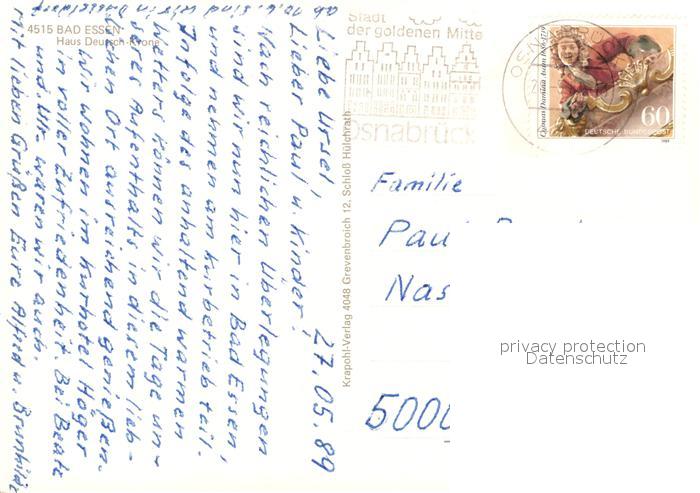 4515 BAD ESSEN
Haus Deutsch-Krone
27.05.89
Liebe Ursel,
Lieber Paul u. Kinder!
Nach reichlichen Überlegungen
sind wir nun hier in Bad Essen,
und nehmen am Kurbetrieb teil.
Infolge des anhaltend warmen
Wetters können wir die Tage un-
seres Aufenthalts in diesem lieb-
lichen Ort ausreichend genießen.
Wir wohnen im Kurhotel Höger
in voller Zufriedenheit. Bei Beate
und waren wir auch.
Mit lieben Grüßen Eure Alfred u. Brunhilde
ab 10.6. sind wir in Düsseldorf
Krapohl-Verlag 4048 Grevenbroich 12, Schloß Hülchrath
Stadt
der goldenen Mitte
Osnabrück
OSNABRÜCK
Cosmas Damian Asam 1686-1739
60
DEUTSCHE BUNDESPOST
Familie
Pau
Nas
5000
privacy protection
Datenschutz